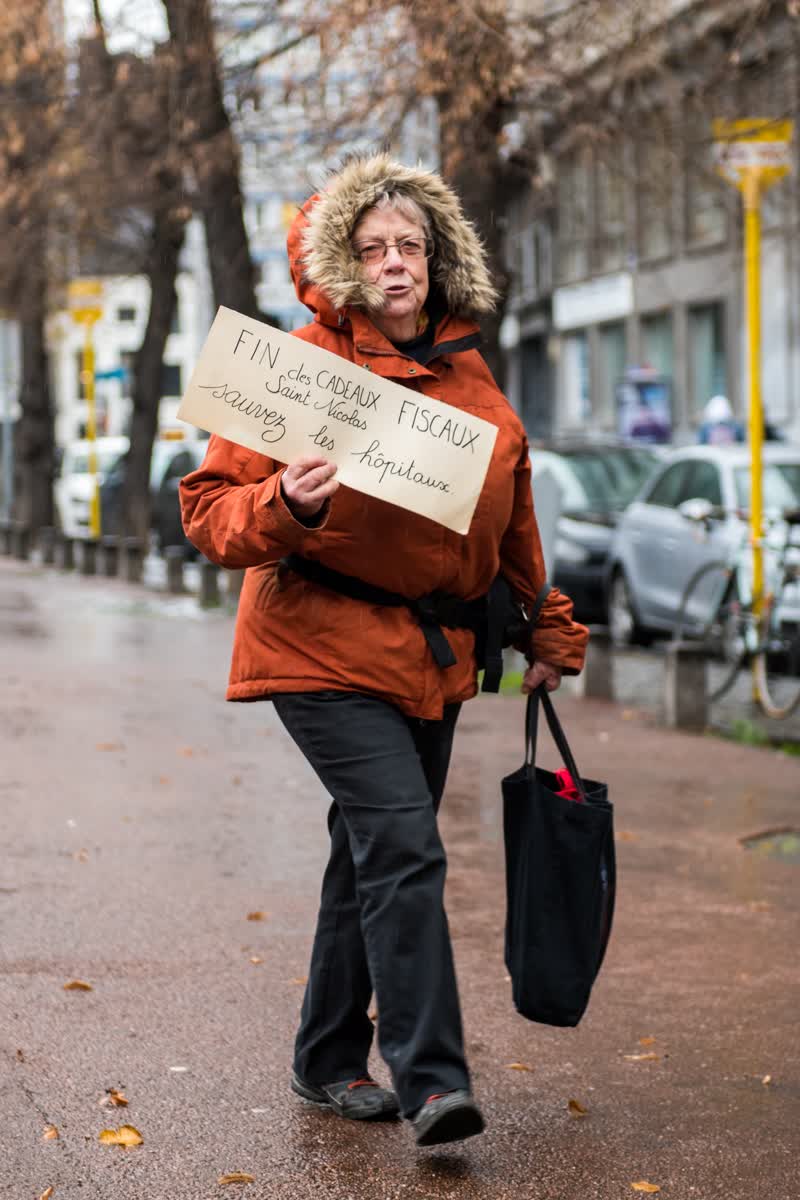 FIN des CADEAUX FISCAUX
Saint Nicolas
sauvez les hôpitaux.